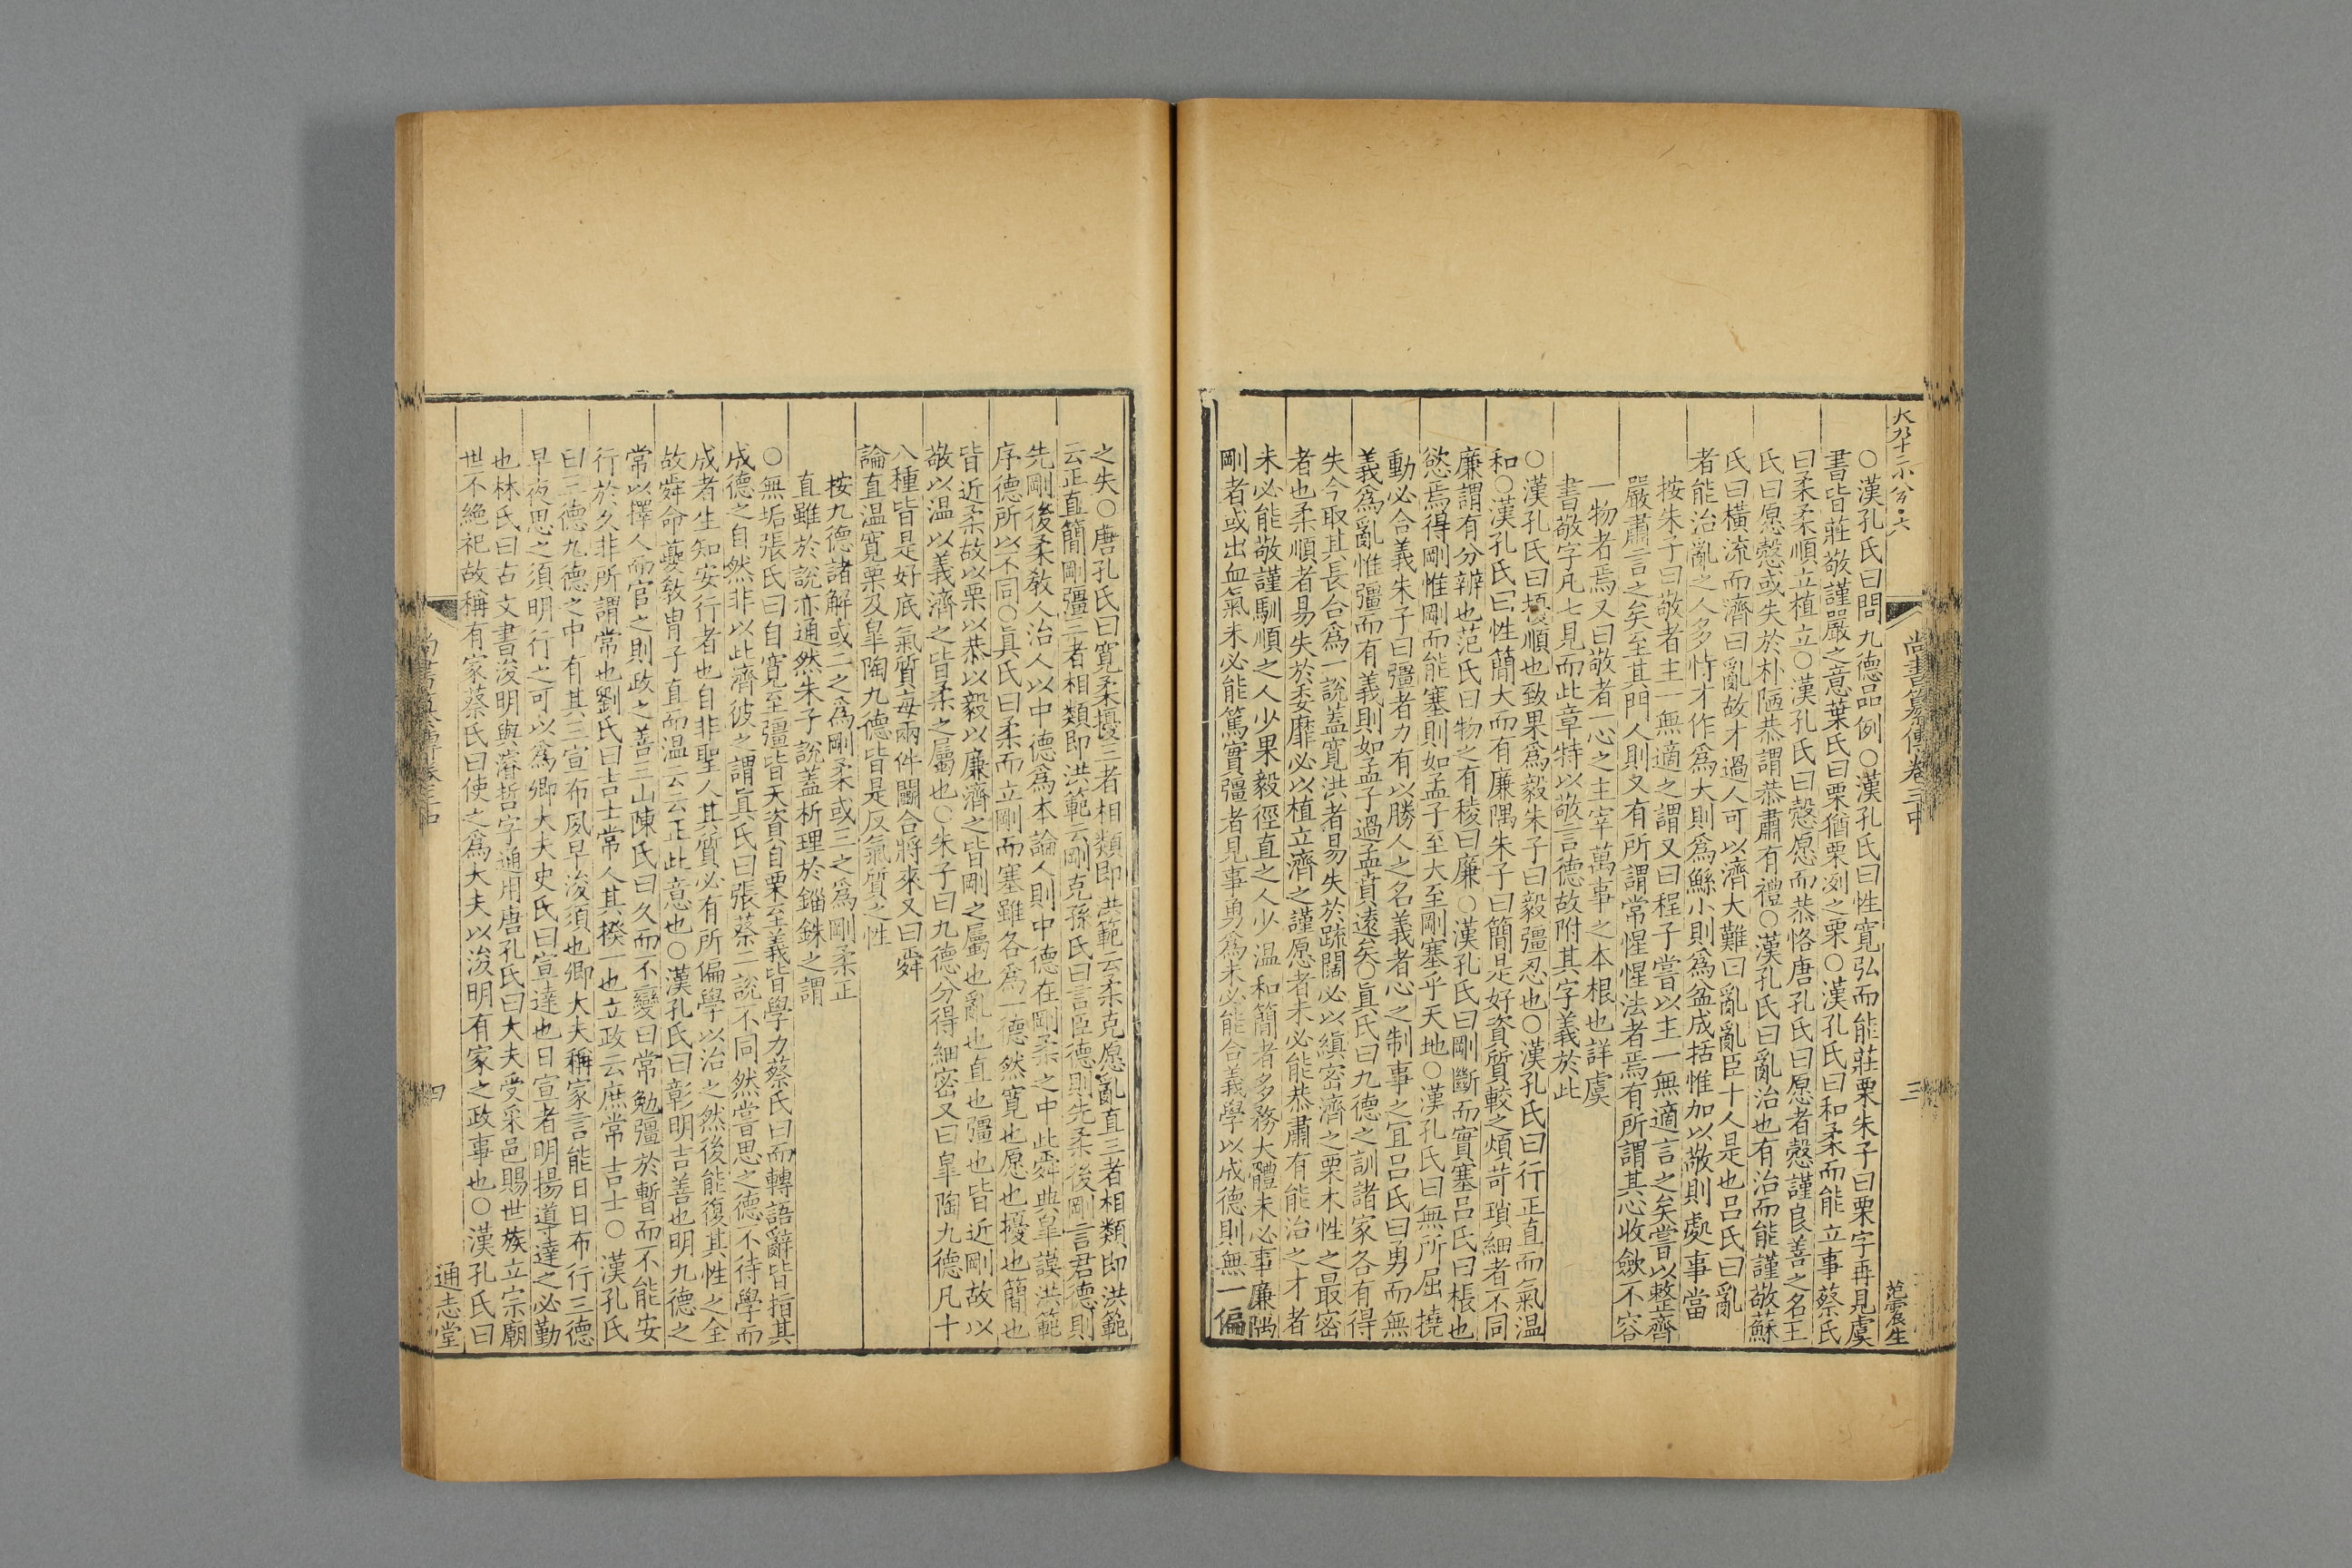 尚書纂傳卷三中
三
范震生
○漢孔氏曰問九德品例○漢孔氏曰性寬弘而能莊栗朱子曰栗字再見虞
書皆莊敬謹嚴之意葉氏曰栗猶栗冽之栗○漢孔氏曰和柔而能立事蔡氏
曰柔柔順立植立○漢孔氏曰愨愿而恭恪唐孔氏曰愿者愨謹良善之名王
氏曰愿愨或失於朴陋恭謂恭肅有禮○漢孔氏曰亂治也有治而能謹敬蘇
氏曰橫流而濟曰亂故才過人可以濟大難曰亂亂臣十人是也呂氏曰亂
者能治亂之人多恃才作爲大則爲鯀小則爲盆成括惟加以敬則處事當
按朱子曰敬者主一無適之謂又曰程子嘗以主一無適言之矣嘗以整齊
嚴肅言之矣至其門人則又有所謂常惺惺法者焉有所謂其心收斂不容
一物者焉又曰敬者一心之主宰萬事之本根也詳虞
書敬字凡七見而此章特以敬言德故附其字義於此
○漢孔氏曰擾順也致果爲毅朱子曰毅彊忍也○漢孔氏曰行正直而氣温
和○漢孔氏曰性簡大而有廉隅朱子曰簡是好資質較之煩苛瑣細者不同
廉謂有分辨也范氏曰物之有稜曰廉○漢孔氏曰剛斷而實塞呂氏曰棖也
慾焉得剛惟剛而能塞則如孟子至大至剛塞乎天地○漢孔氏曰無所屈撓
動必合義朱子曰彊者力有以勝人之名義者心之制事之宜呂氏曰勇而無
義爲亂惟彊而有義則如孟子過孟賁遠矣○眞氏曰九德之訓諸家各有得
失今取其長合爲一說蓋寬洪者易失於疏闊必以縝密濟之栗木性之最密
者也柔順者易失於委靡必以植立濟之謹愿者未必能恭肅有能治之才者
未必能敬謹馴順之人少果毅徑直之人少温和簡者多務大體未必事廉隅
剛者或出血氣未必能篤實彊者見事勇爲未必能合義學以成德則無一偏
之失○唐孔氏曰寬柔擾三者相類即洪範云柔克愿亂直三者相類即洪範
云正直簡剛彊三者相類即洪範云剛克孫氏曰言臣德則先柔後剛言君德則
先剛後柔敎人治人以中德爲本論人則中德在剛柔之中此舜典臯謨洪範
序德所以不同○眞氏曰柔而立剛而塞雖各爲一德然寛也愿也擾也簡也
皆近柔故以栗以恭以毅以廉濟之皆剛之屬也亂也直也彊也皆近剛故以
敬以温以義濟之皆柔之屬也○朱子曰九德分得細密又曰臯陶九德凡十
八種皆是好底氣質每兩件鬭合將來又曰舜
論直温寬栗及臯陶九德皆是反氣質之性
按九德諸解或二之爲剛柔或三之爲剛柔正
直雖於說亦通然朱子說蓋析理於錙銖之謂
○無垢張氏曰自寬至彊皆天資自栗至義皆學力蔡氏曰而轉語辭皆指其
成德之自然非以此濟彼之謂眞氏曰張蔡二說不同然嘗思之德不待學而
成者生知安行者也自非聖人其質必有所偏學以治之然後能復其性之全
故舜命夔敎胄子直而温云云正此意也○漢孔氏曰彰明吉善也明九德之
常以擇人而官之則政之善三山陳氏曰久而不變曰常勉彊於暫而不能安
行於久非所謂常也劉氏曰吉士常人其揆一也立政云庶常吉士○漢孔氏
曰三德九德之中有其三宣布夙早浚須也卿大夫稱家言能日日布行三德
早夜思之須明行之可以爲卿大夫史氏曰宣達也日宣者明揚導達之必勤
也林氏曰古文書浚明與濬哲字通用唐孔氏曰大夫受采邑賜世族立宗廟
世不絶祀故稱有家蔡氏曰使之爲大夫以浚明有家之政事也○漢孔氏曰
四
通志堂